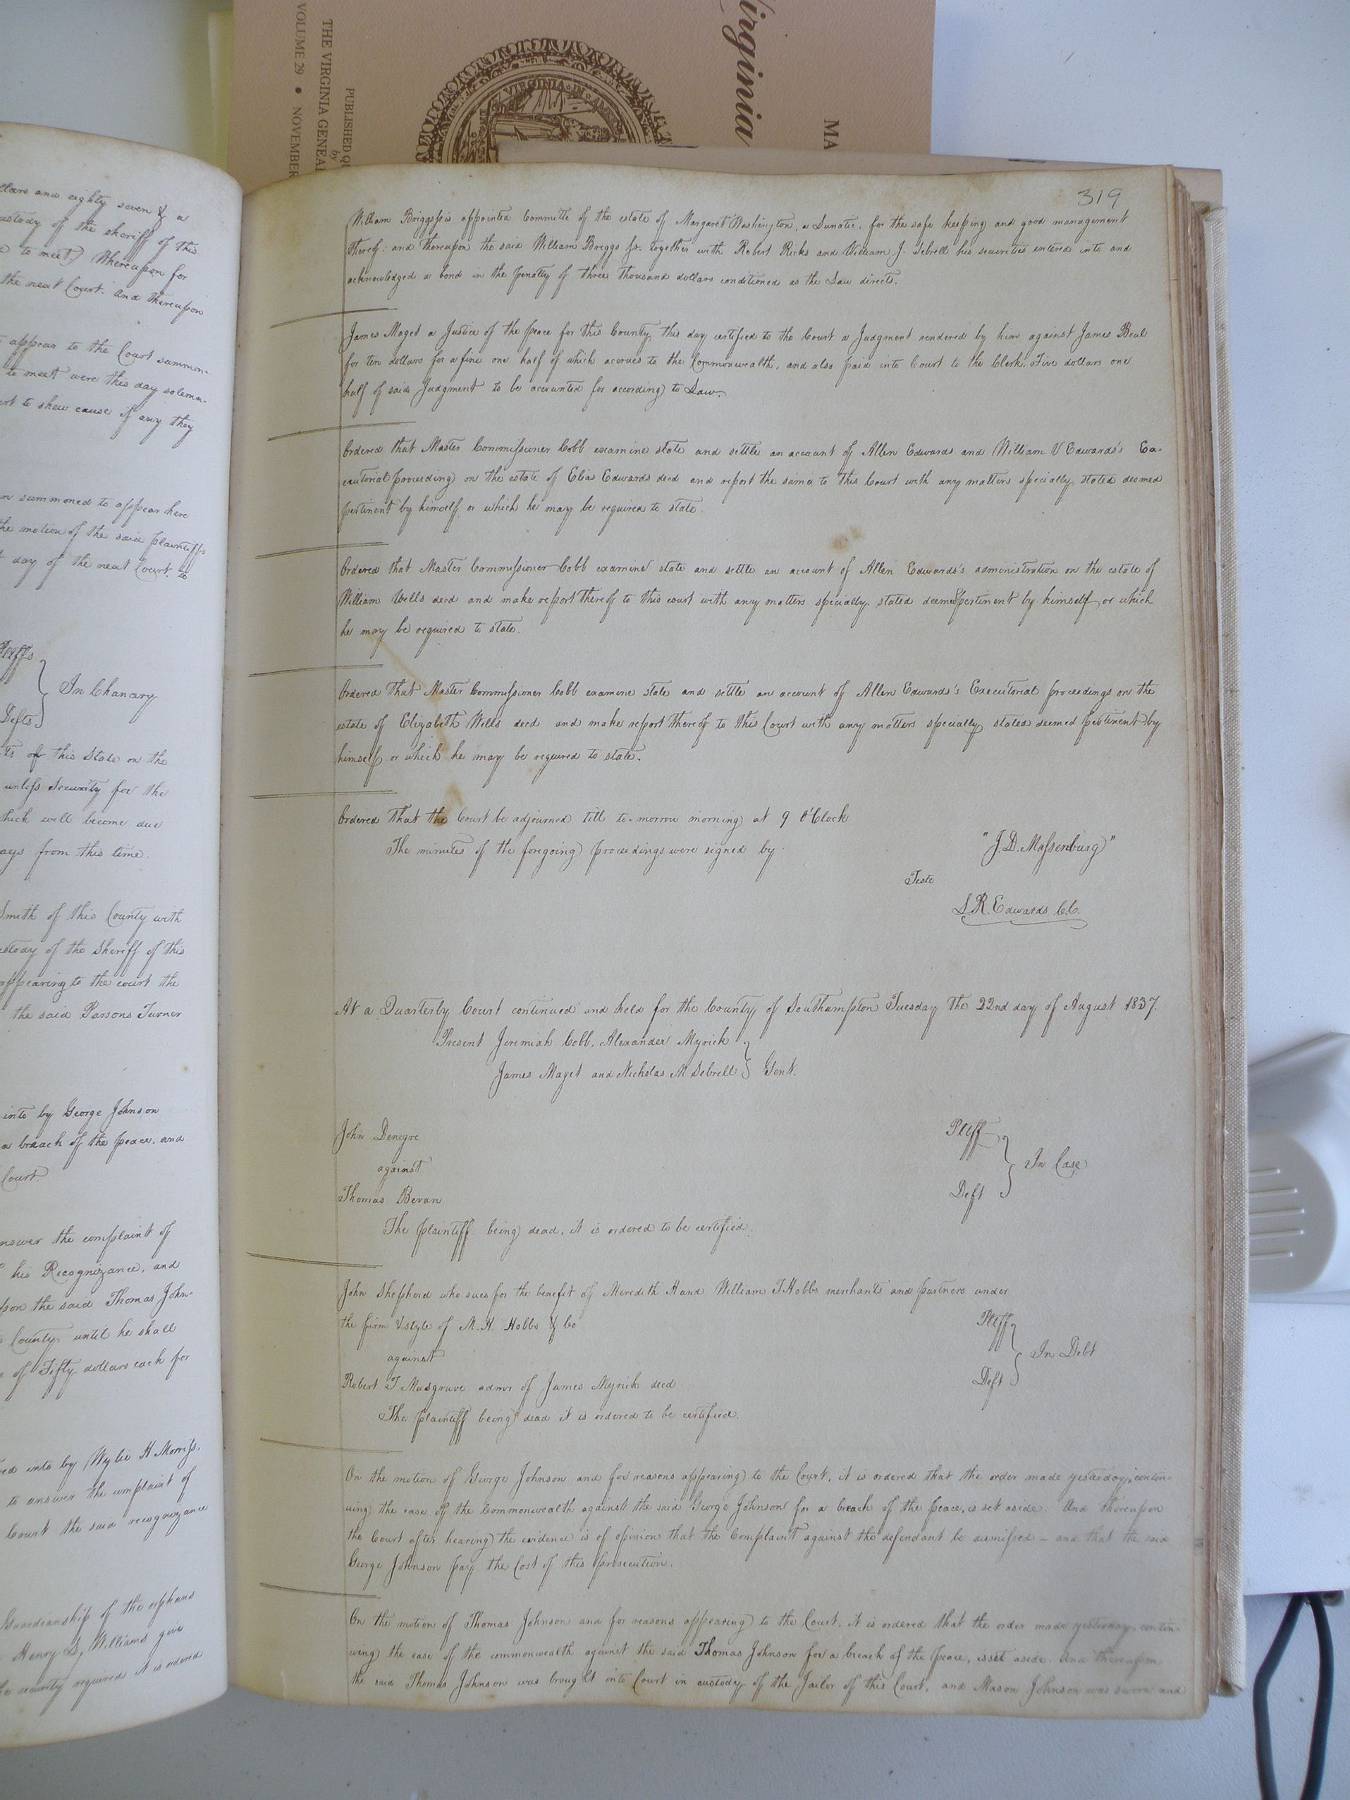 Virginia
MA
PUBLISHED QU
by
THE VIRGINIA GENEA
VOLUME 29 • NOVEMBER
VIRGINIA
and eighty seven & a
custody of the sheriff of this
to meet) Whereupon for
the next Court. And thereupon
appear to the Court summon-
to meet were this day solemn-
to shew cause if any they
summoned to appear here
the motion of the said plaintiffs
day of the next Court, to
Pltffs
In Chancery
Defts
of this State on the
unless security for the
which will become due
days from this time.
Smith of this County with
custody of the Sheriff of this
appearing to the court the
the said Parsons Turner
into by George Johnson
a breach of the peace, and
Court.
answer the complaint of
his Recognizance, and
upon the said Thomas John-
County until he shall
of Fifty dollars each for
into by Wylie H Morriss,
to answer the complaint of
Court the said recognizance
Guardianship of the orphans
Henry L, Williams give
security required it is ordered
319
William Briggs Jr is appointed Committe of the estate of Margaret Washington, a Lunatic, for the safe keeping and good management
thereof: and thereupon the said William Briggs Jr. together with Robert Ricks and William J. Sebrell his securities entered into and
acknowledged a bond in the penalty of three thousand dollars conditioned as the Law directs.
James Maget a Justice of the peace for this County, this day certified to the Court a Judgment rendered by him against James Beal
for ten dollars for a fine one half of which accrues to the Commonwealth, and also paid into Court to the Clerk, Five dollars one
half of said Judgment to be accounted for according to Law.
Ordered that Master Commissioner Cobb examine state and settle an account of Allen Edwards and William V Edwards's Ex-
ecutorial proceeding on the estate of Elias Edwards decd and report the same to this Court with any matters specially stated deemed
pertinent by himself or which he may be required to state.
Ordered that Master Commissioner Cobb examine state and settle an account of Allen Edwards's administration on the estate of
William Wells decd and make report thereof to this court with any matters specially stated deemed pertinent by himself, or which
he may be required to state.
Ordered that Master Commissioner Cobb examine state and settle an account of Allen Edwards's Executorial proceedings on the
estate of Elizabeth Wills decd and make report thereof to this Court with any matters specially stated deemed pertinent by
himself or which he may be required to state.
Ordered that the Court be adjourned till to-morrow morning at 9 O'Clock
The minutes of the foregoing proceedings were signed by
"J. D. Massenburg"
Teste
L. R. Edwards C.C.
At a Quarterly Court continued and held for the County of Southampton Tuesday the 22nd day of August 1837.
Present Jeremiah Cobb, Alexander Myrick
James Maget and Nicholas M Sebrell } Gent.
John Denegre
Pltff
against
In Case
Thomas Bevan
Deft
The plaintiff being dead, it is ordered to be certified.
John Shepherd who sues for the benefit of Meredith H and William T. Hobbs merchants and partners under
the firm & style of M. H. Hobbs & Co
Pltff
against
In Debt
Robert T Musgrave admor of James Myrick decd
Deft
The plaintiff being dead it is ordered to be certified.
On the motion of George Johnson and for reasons appearing to the Court, it is ordered that the order made yesterday, contin-
uing the case of the Commonwealth against the said George Johnson for a breach of the peace, is set aside. And thereupon
the Court after hearing the evidence is of opinion that the Complaint against the defendant be dismissed – and that the said
George Johnson pay the Cost of this prosecution.
On the motion of Thomas Johnson and for reasons appearing to the Court, it is ordered that the order made yesterday contin-
uing the case of the commonwealth against the said Thomas Johnson for a breach of the peace, is set aside. And thereupon
the said Thomas Johnson was brought into Court in custody of the Jailor of this Court, and Mason Johnson was sworn and